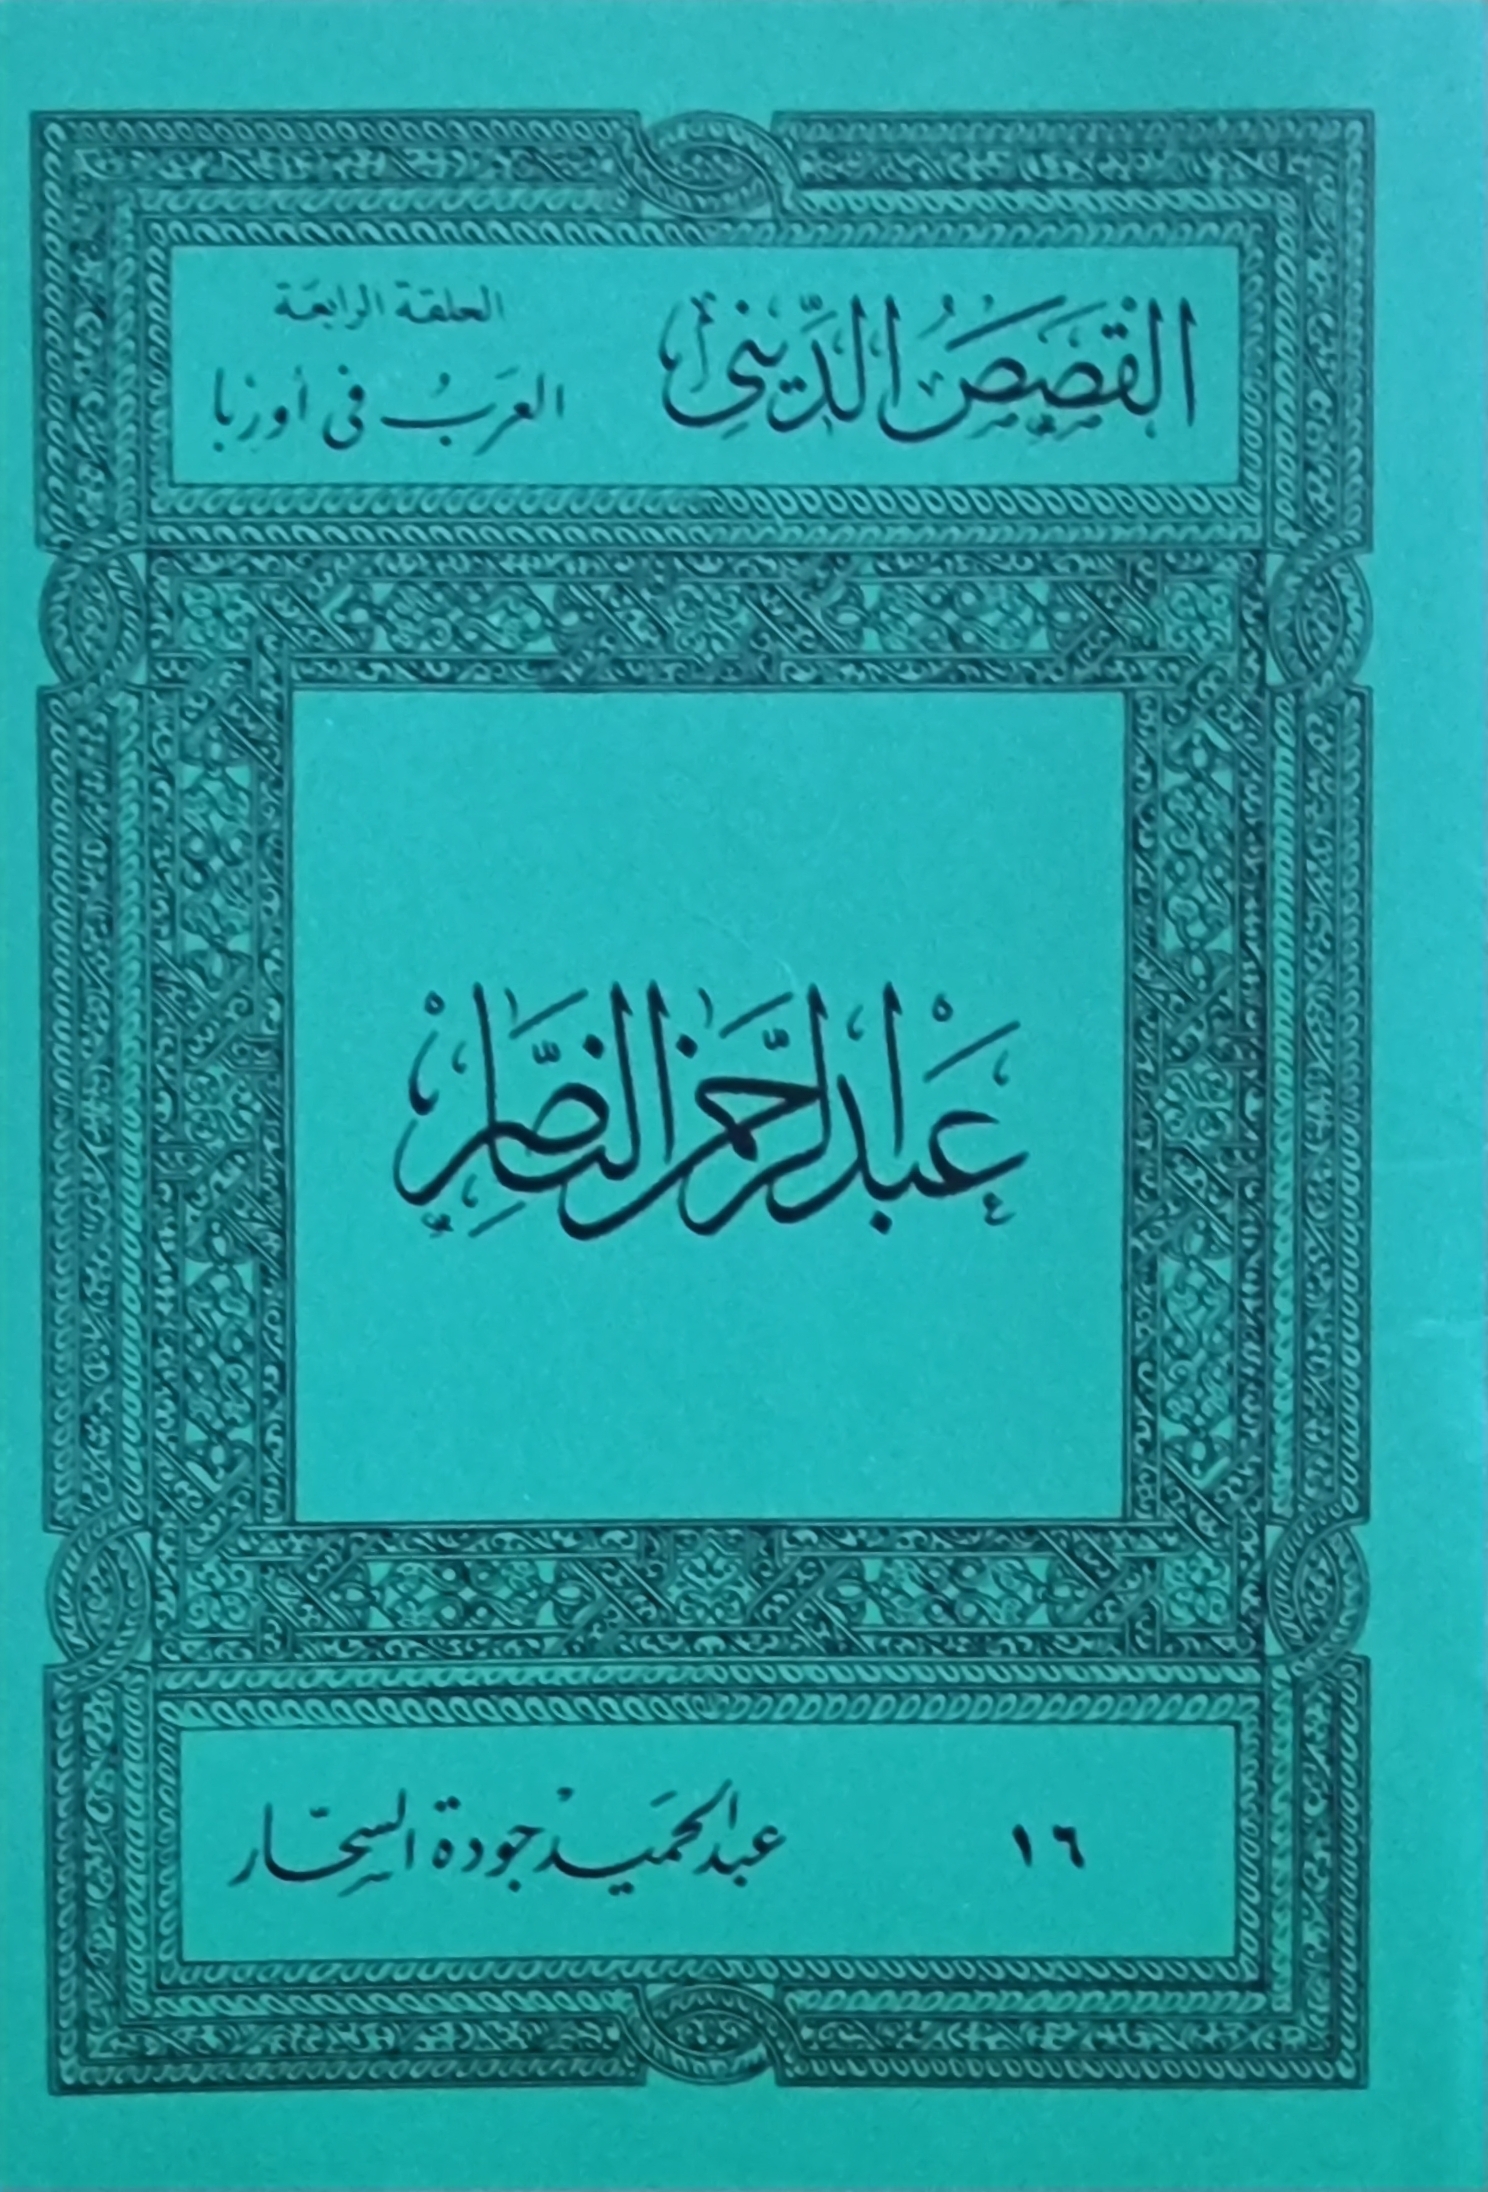 القَصَصُ الدِّينِى
الحلقة الرابعة
العَرَبُ فى أوربا
عَبْدُ الرَّحْمَن النَّاصِرْ
١٦
عبد الحَميد جودة السحّار